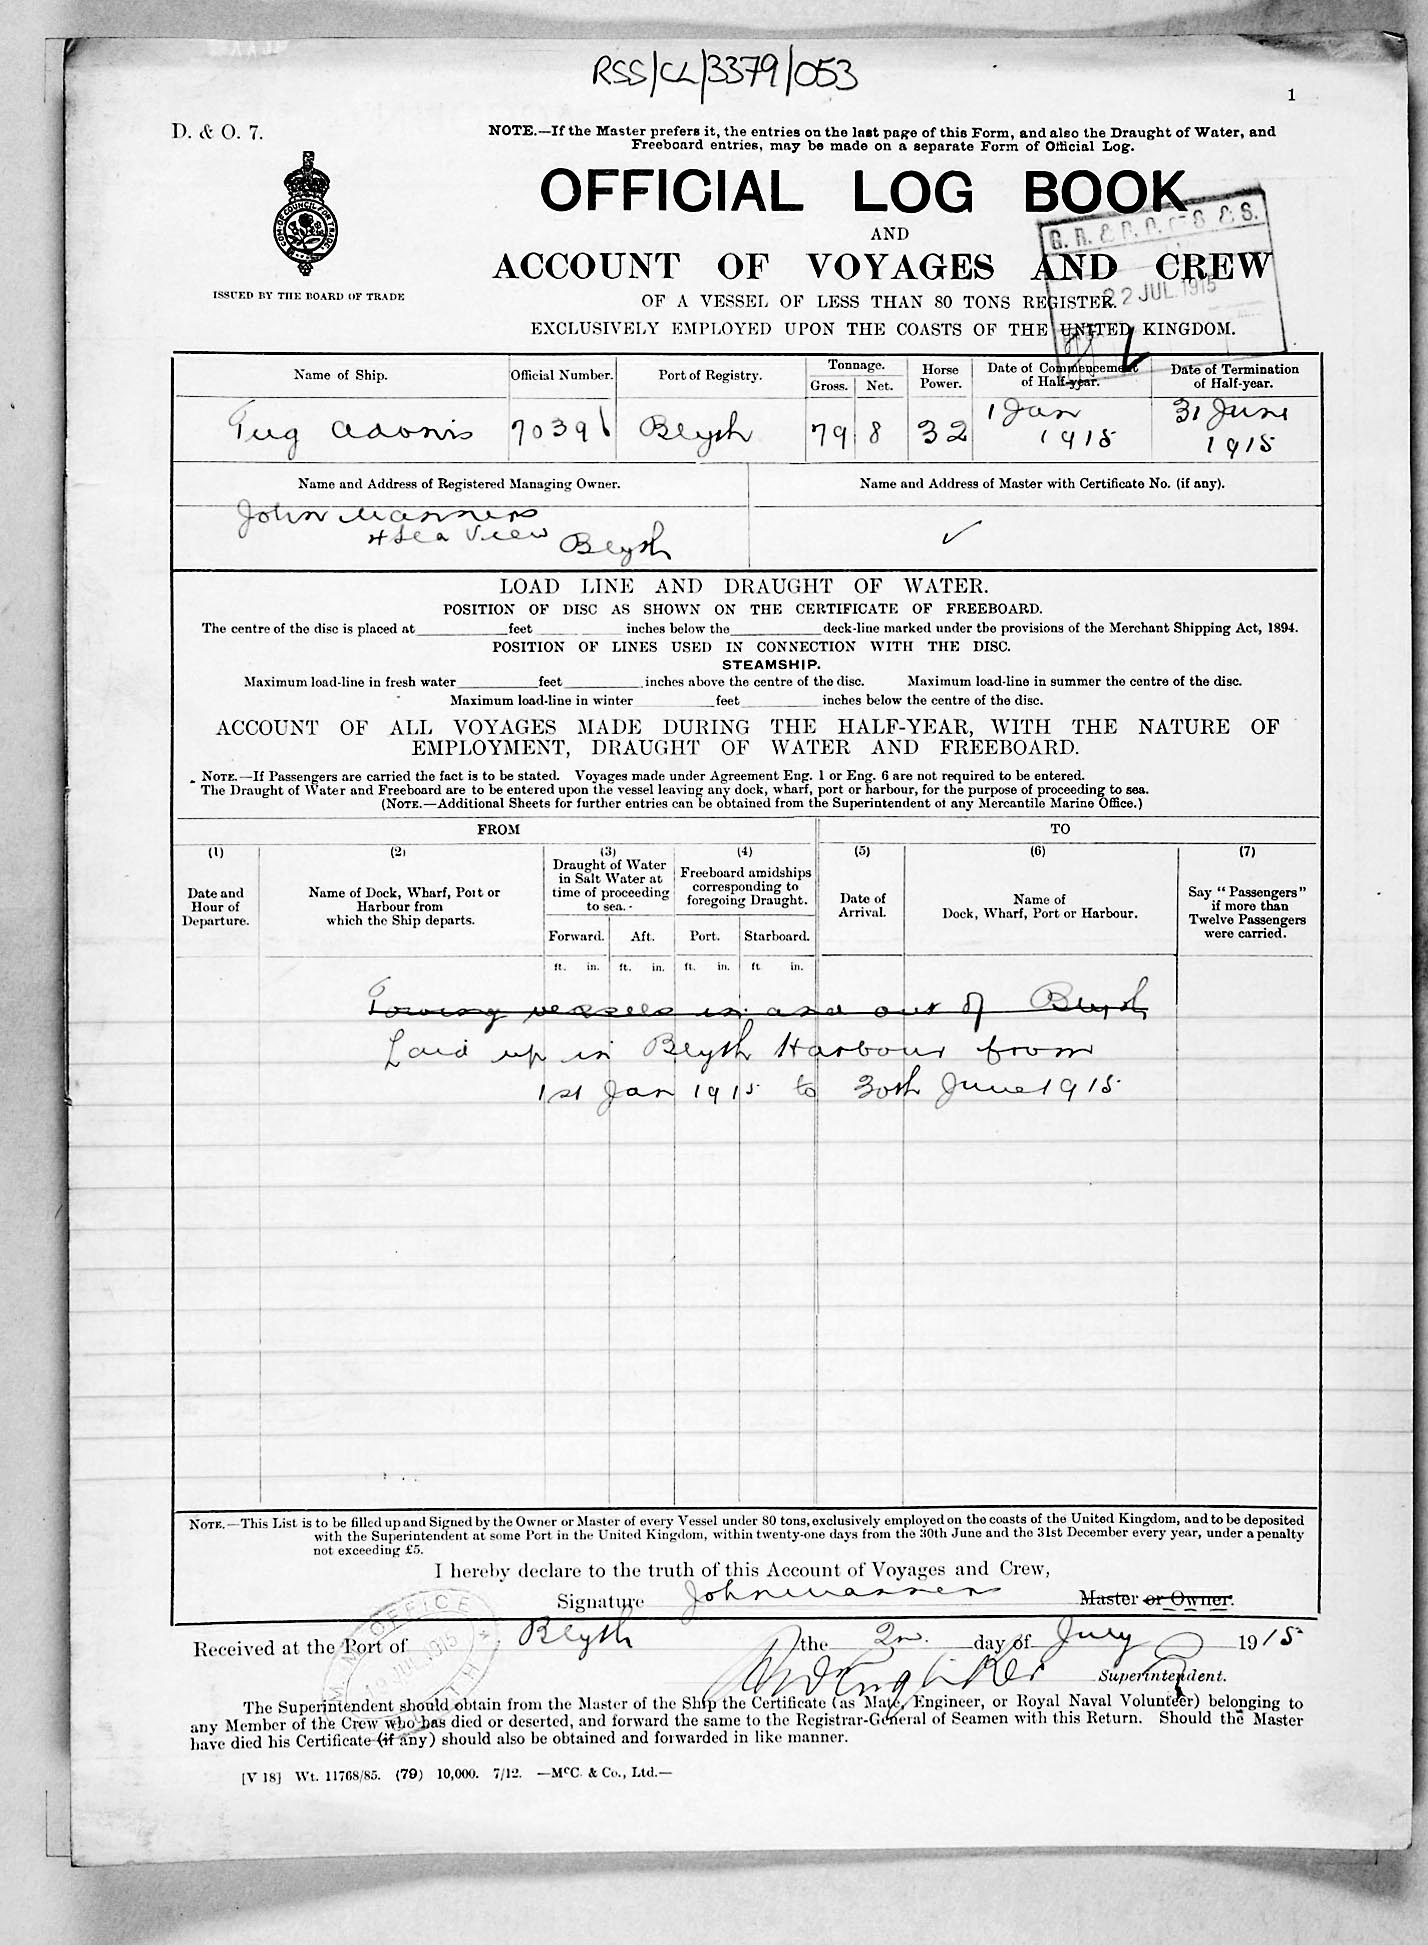 RSS/CL/3379/053
1
D. & O. 7.
NOTE.—If the Master prefers it, the entries on the last page of this Form, and also the Draught of Water, and
Freeboard entries, may be made on a separate Form of Official Log.
OFFICIAL LOG BOOK
AND
ACCOUNT OF VOYAGES AND CREW
OF A VESSEL OF LESS THAN 80 TONS REGISTER.
EXCLUSIVELY EMPLOYED UPON THE COASTS OF THE UNITED KINGDOM.
COM. OF COUNCIL FOR TRADE
ISSUED BY THE BOARD OF TRADE
22 JUL. 1915
Name of Ship. Official Number. Port of Registry. Tonnage. Gross. Net. Horse Power. Date of Commencement of Half-year. Date of Termination of Half-year.
Tug Adonis 70391 Blyth 79 8 32 1 Jan 1915 31 June 1915
Name and Address of Registered Managing Owner. Name and Address of Master with Certificate No. (if any).
John Manners
4 Sea View Blyth
LOAD LINE AND DRAUGHT OF WATER.
POSITION OF DISC AS SHOWN ON THE CERTIFICATE OF FREEBOARD.
The centre of the disc is placed at feet inches below the deck-line marked under the provisions of the Merchant Shipping Act, 1894.
POSITION OF LINES USED IN CONNECTION WITH THE DISC.
STEAMSHIP.
Maximum load-line in fresh water feet inches above the centre of the disc. Maximum load-line in summer the centre of the disc.
Maximum load-line in winter feet inches below the centre of the disc.
ACCOUNT OF ALL VOYAGES MADE DURING THE HALF-YEAR, WITH THE NATURE OF
EMPLOYMENT, DRAUGHT OF WATER AND FREEBOARD.
NOTE.—If Passengers are carried the fact is to be stated. Voyages made under Agreement Eng. 1 or Eng. 6 are not required to be entered.
The Draught of Water and Freeboard are to be entered upon the vessel leaving any dock, wharf, port or harbour, for the purpose of proceeding to sea.
(NOTE.—Additional Sheets for further entries can be obtained from the Superintendent of any Mercantile Marine Office.)
FROM TO
(1) (2) (3) (4) (5) (6) (7)
Date and Hour of Departure.
Name of Dock, Wharf, Port or Harbour from which the Ship departs.
Draught of Water in Salt Water at time of proceeding to sea.
Freeboard amidships corresponding to foregoing Draught.
Date of Arrival.
Name of Dock, Wharf, Port or Harbour.
Say "Passengers" if more than Twelve Passengers were carried.
Forward. Aft. Port. Starboard.
ft. in. ft. in. ft. in. ft. in.
Towing vessels in and out of Blyth
Laid up in Blyth Harbour from
1st Jan 1915 to 30th June 1915
NOTE.—This List is to be filled up and Signed by the Owner or Master of every Vessel under 80 tons, exclusively employed on the coasts of the United Kingdom, and to be deposited
with the Superintendent at some Port in the United Kingdom, within twenty-one days from the 30th June and the 31st December every year, under a penalty
not exceeding £5.
I hereby declare to the truth of this Account of Voyages and Crew,
Signature John Manners Master or Owner.
Received at the Port of Blyth the 2nd day of July 1915
Superintendent.
The Superintendent should obtain from the Master of the Ship the Certificate (as Mate, Engineer, or Royal Naval Volunteer) belonging to
any Member of the Crew who has died or deserted, and forward the same to the Registrar-General of Seamen with this Return. Should the Master
have died his Certificate (if any) should also be obtained and forwarded in like manner.
[V 18] Wt. 11768/85. (79) 10,000. 7/12. —McC. & Co., Ltd.—